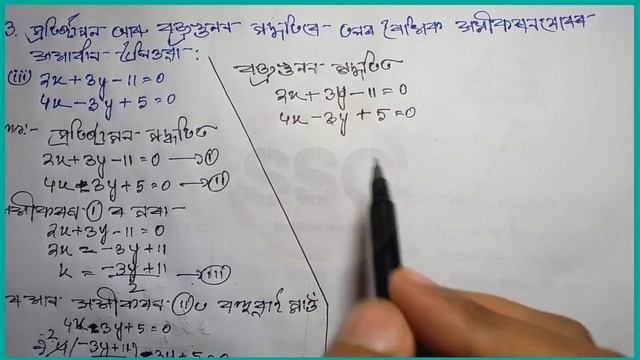 3. প্ৰতিস্থাপন আৰু বজ্ৰগুণন পদ্ধতিৰে তলৰ ৰৈখিক সমীকৰণবোৰৰ
সমাধান উলিওৱা:
(iii) 2x + 3y - 11 = 0
4x - 3y + 5 = 0
প্ৰতিস্থাপন পদ্ধতিত
2x + 3y - 11 = 0 → (i)
4x - 3y + 5 = 0 → (ii)
সমীকৰণ (i) ৰ পৰা -
2x + 3y - 11 = 0
2x = -3y + 11
x = -3y + 11 / 2 → (iii)
সমীকৰণ (ii) ত
4x - 3y + 5 = 0
বজ্ৰগুণন পদ্ধতিত
2x + 3y - 11 = 0
4x - 3y + 5 = 0
SSC